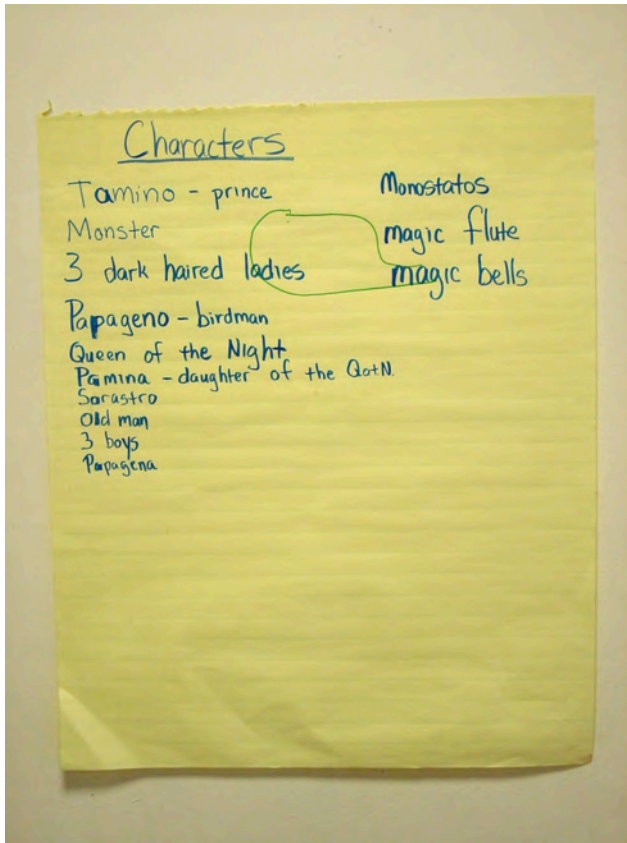 Characters
Tamino - prince
Monster
3 dark haired ladies
Papageno - birdman
Queen of the Night
Pamina - daughter of the QotN.
Sarastro
Old man
3 boys
Papagena
Monostatos
magic flute
magic bells